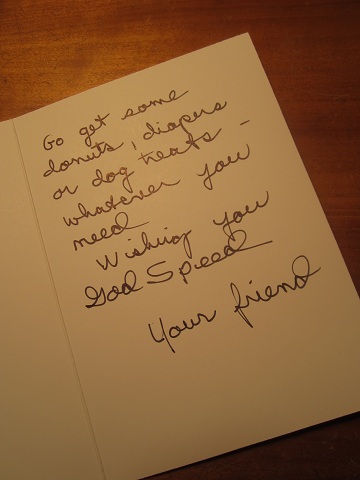 Go get some
donuts, diapers
or dog treats -
whatever you
need
Wishing you
God Speed
Your friend